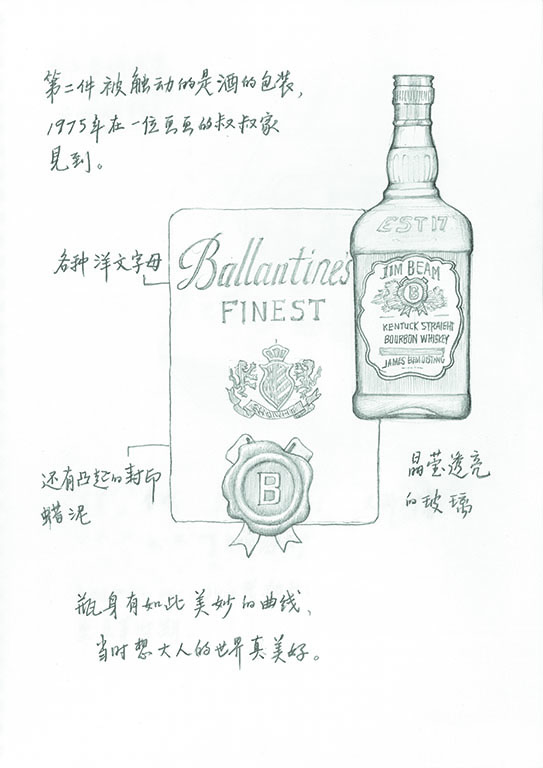 第二件被触动的是酒的包装，
1975年在一位豆豆的叔叔家
見到。
各种洋文字母
Ballantine's
FINEST
EST17
JIM BEAM
B
KENTUCK STRAIGHT
BOURBON WHISKEY
JAMES BEAM DISTING
还有凸起的封印
蜡泥
B
晶莹透亮
的玻璃
瓶身有如此美妙的曲线、
当时想大人的世界真美好。